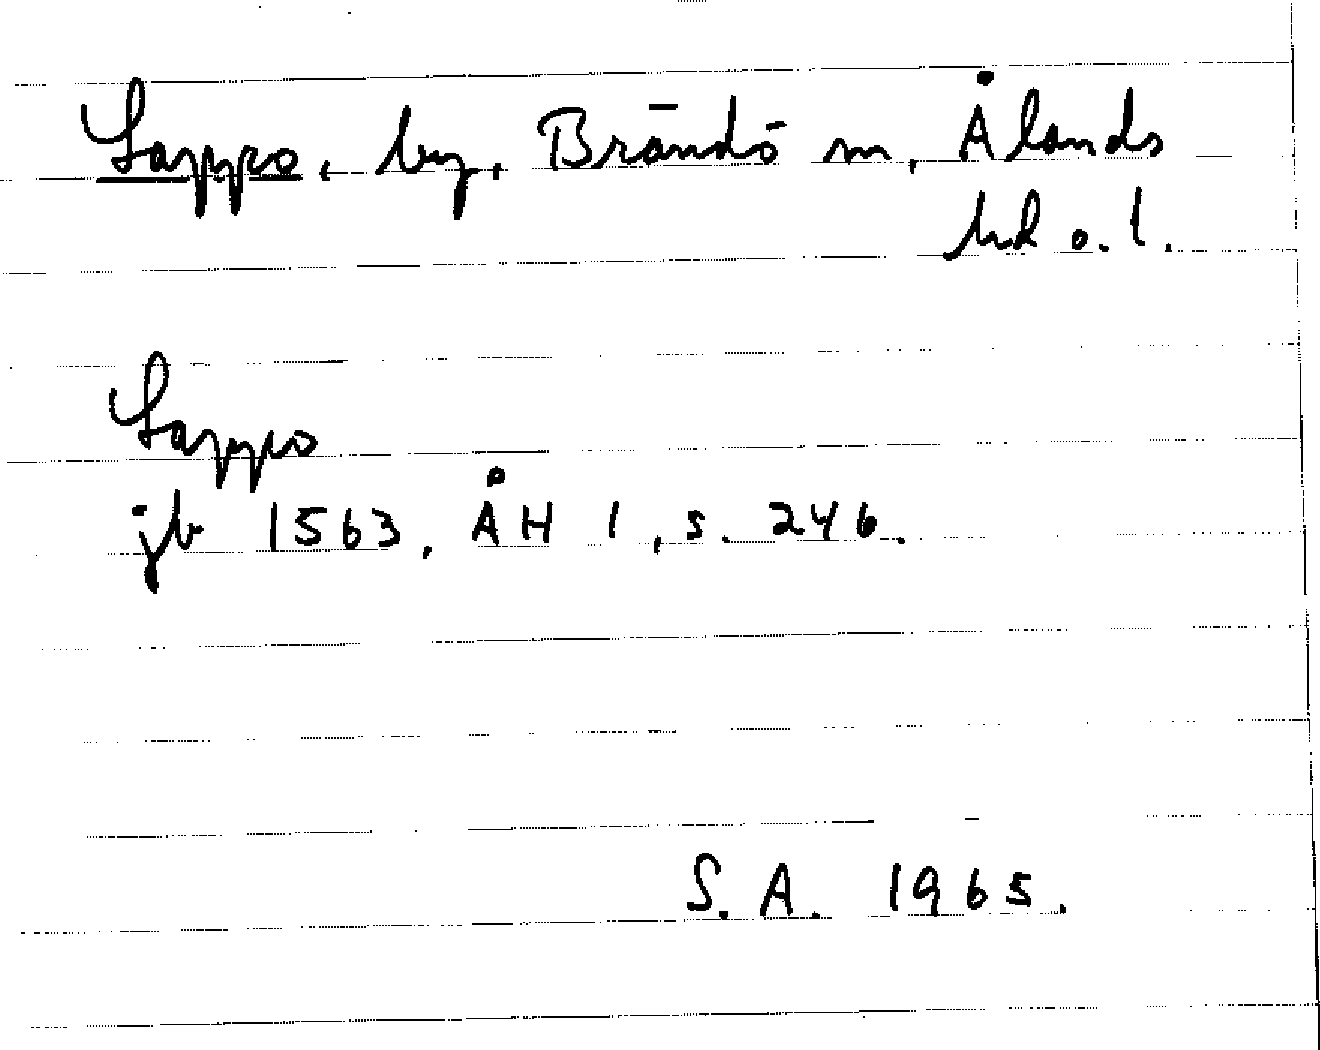 Lappo, by, Brändö sn, Ålands
hd o. l.
Lappo
jb 1563, ÅH 1, s. 246.
S. A. 1965.